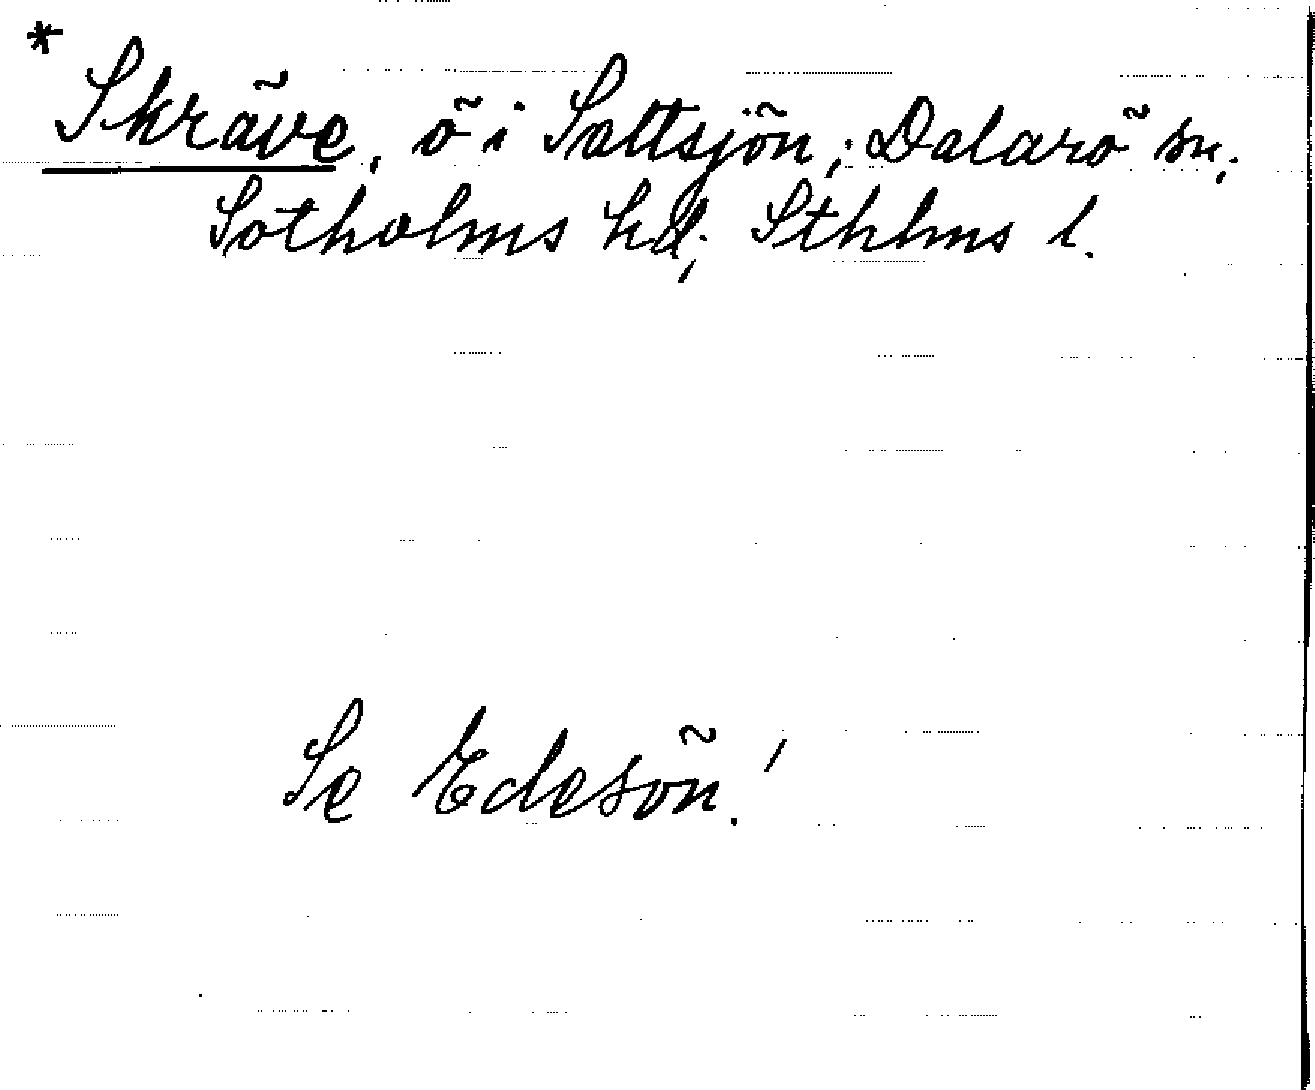 * Skräve, ö i Saltsjön; Dalarö sn;
Sotholms hd; Sthlms l.
Se Edesön!